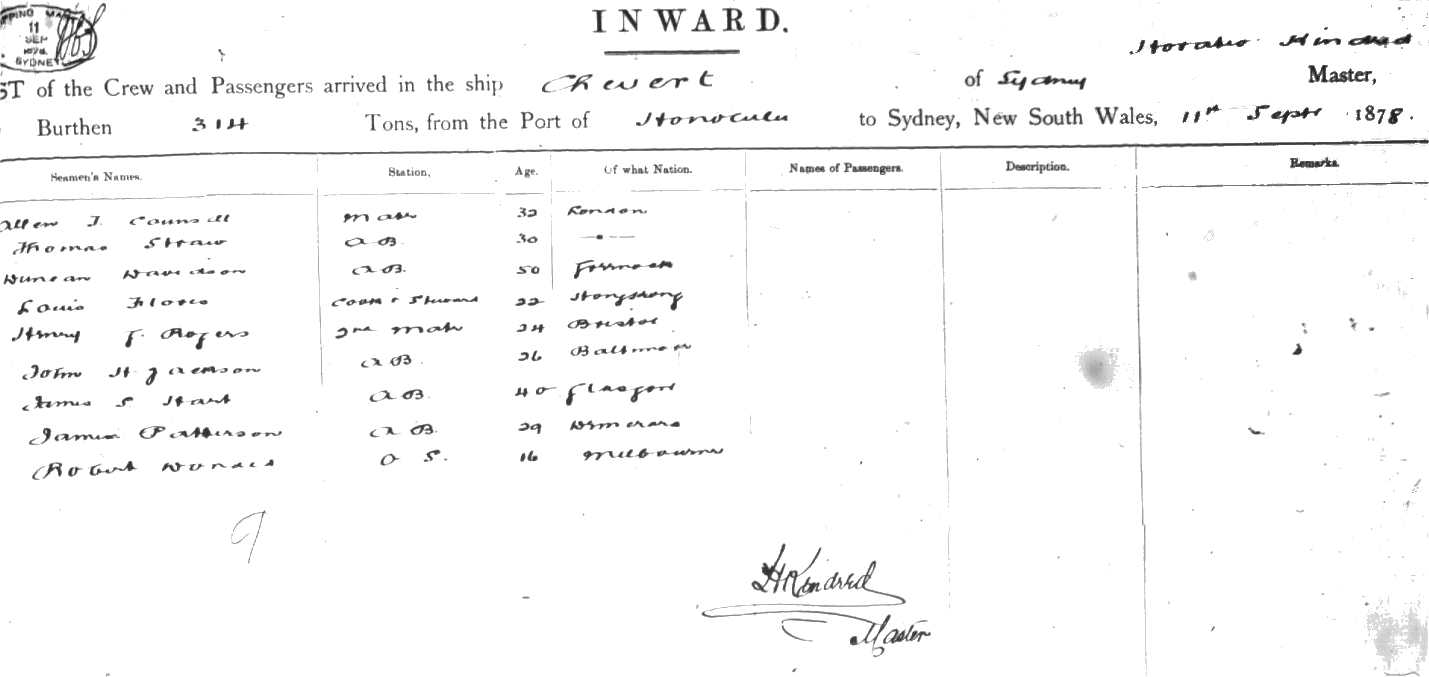 PPING MA
11
SEP
1878
SYDNEY
INWARD.
Horatio Kindred
ST of the Crew and Passengers arrived in the ship Chevert of Sydney Master,
Burthen 314 Tons, from the Port of Honolulu to Sydney, New South Wales, 11th Septr 1878.
Seamen's Names. Station, Age. Of what Nation. Names of Passengers. Description. Remarks.
Allen J. Counsell Mate 32 London
Thomas Straw A B. 30 —"—
Duncan Davidson A B. 50
Louis Flores Cook & Steward 22 Hongkong
Henry F. Rogers 2nd Mate 24 Bristol
John H Jackson A B. 26 Baltimore
James S Hart A B. 40 Glasgow
James Patterson A B. 29 Demerara
Robert O S. 16 Melbourne
9
H Kindred
Master